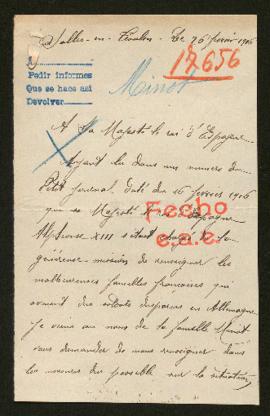 Salles-en-
Le 26 février 1916
17656
A
Pedir informes
Que se hace así
Devolver
Minet
A Sa Majesté le roi d'Espagne
Ayant lu dans un numéro du
Petit Journal daté du 16 février 1916
que sa Majesté le roi d'Espagne
Alphonse XIII s'était chargé de la
généreuse mission de renseigner les
malheureuses familles françaises qui
avaient des enfants disparus en Allemagne
je viens au nom de la famille Minet
vous demander de nous renseigner dans
la mesure du possible sur la situation
Fecho
e.a.e.